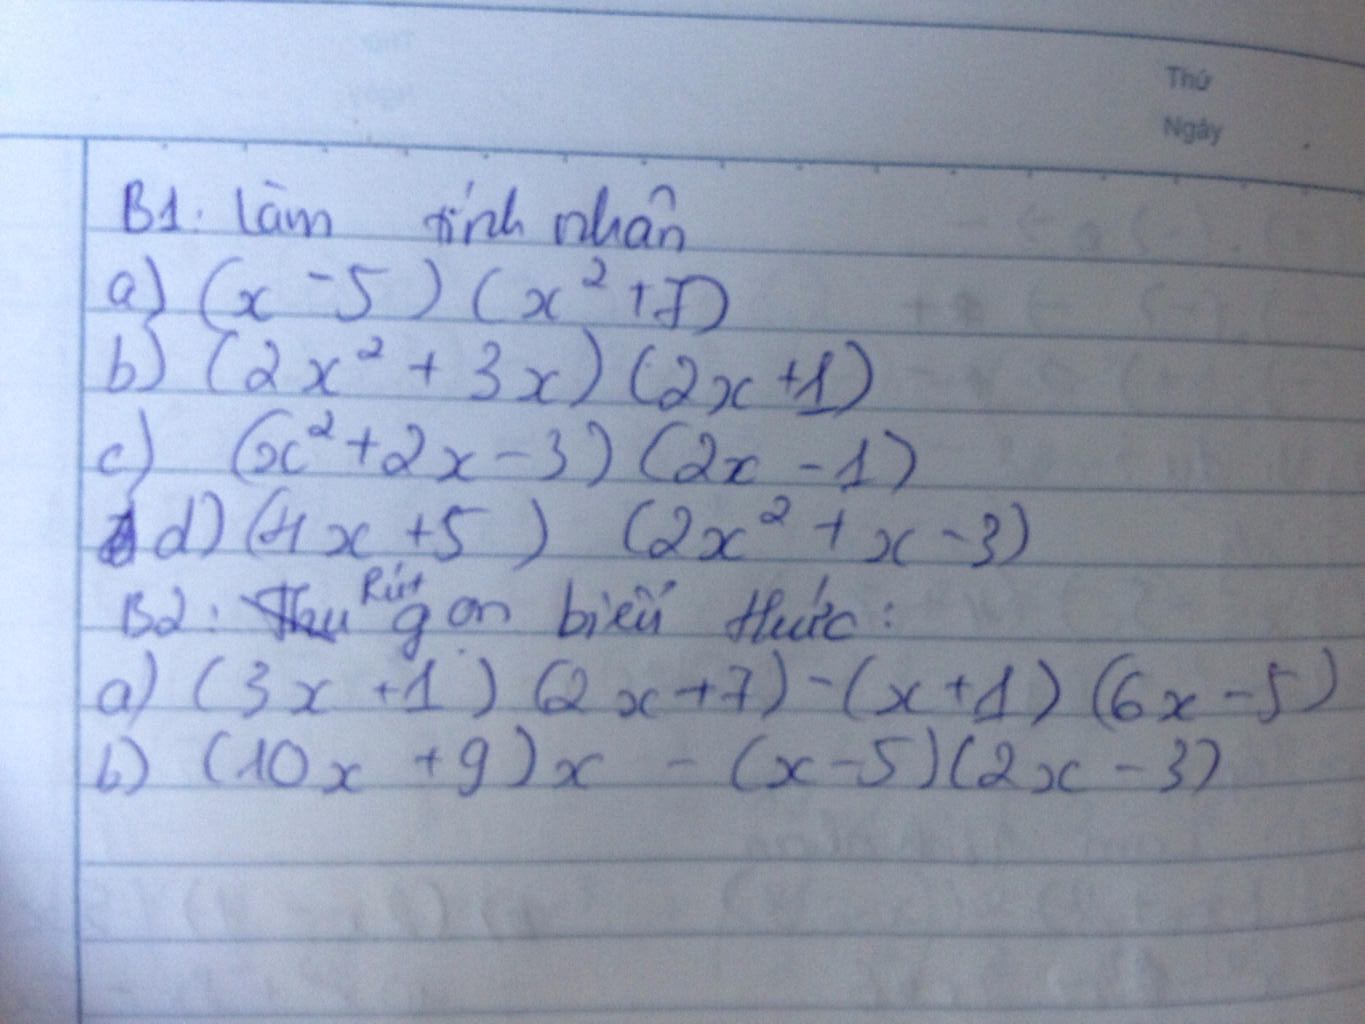 Thứ
Ngày
B1: Làm tính nhân
a) (x - 5) (x² + 7)
b) (2x² + 3x) (2x + 1)
c) (x² + 2x - 3) (2x - 1)
d) (4x + 5) (2x² + x - 3)
B2: Rút gọn biểu thức:
a) (3x + 1) (2x + 7) - (x + 1) (6x - 5)
b) (10x + 9)x - (x - 5)(2x - 3)